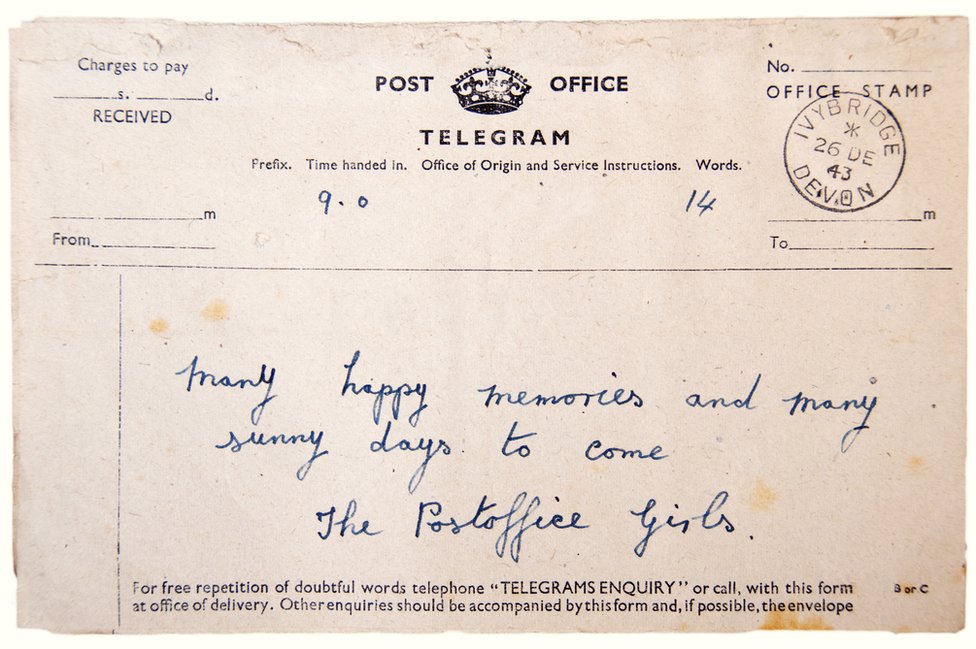 Charges to pay
s. d.
RECEIVED
POST OFFICE
TELEGRAM
No.
OFFICE STAMP
IVYBRIDGE
26 DE
43
DEVON
Prefix. Time handed in. Office of Origin and Service Instructions. Words.
9.0 14
m
From
m
To
Many happy memories and many
sunny days to come
The Postoffice Girls.
For free repetition of doubtful words telephone "TELEGRAMS ENQUIRY" or call, with this form
at office of delivery. Other enquiries should be accompanied by this form and, if possible, the envelope
B or C